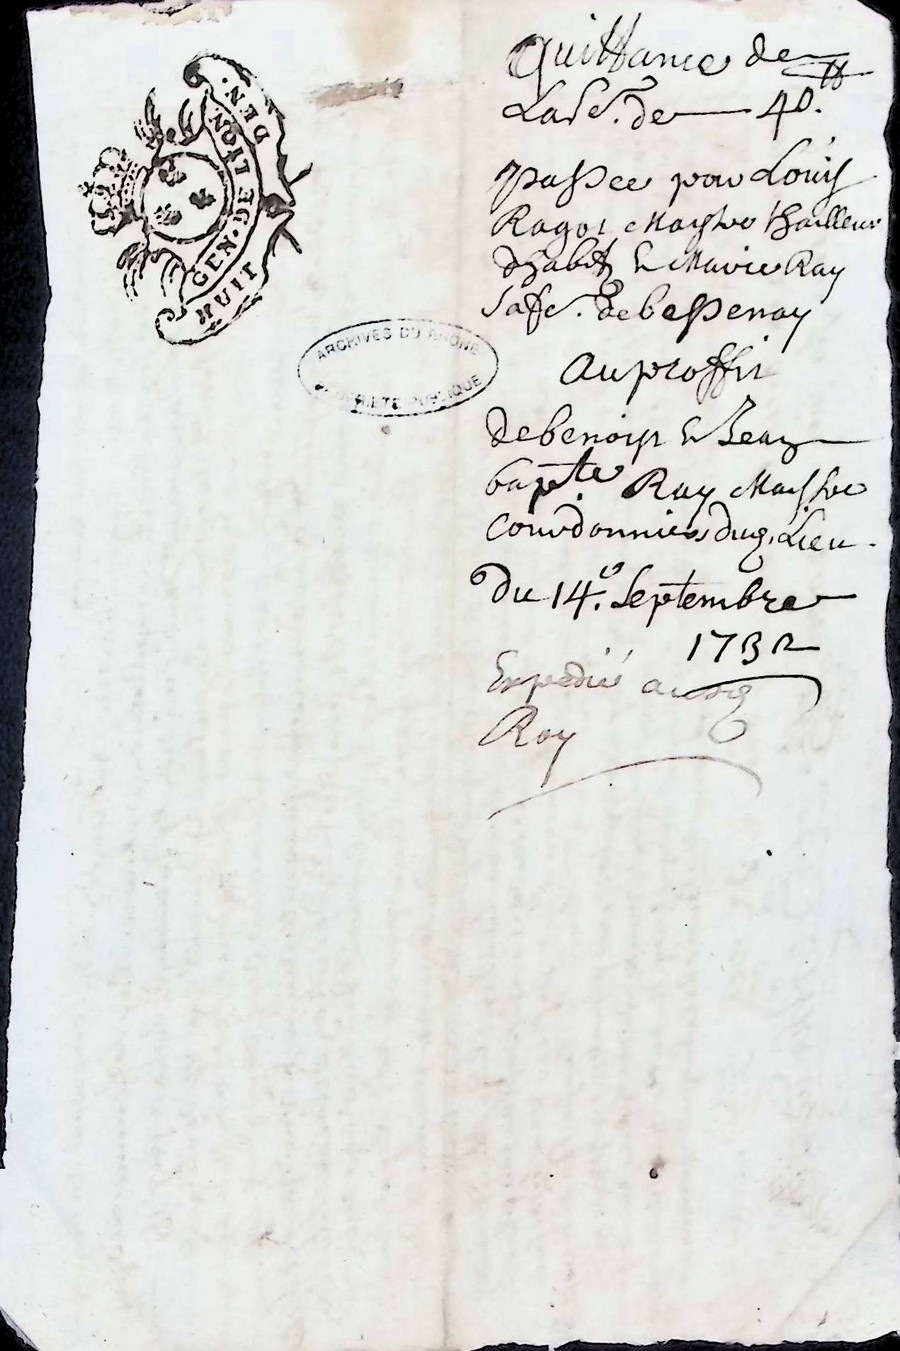 GEN · DE LION ·
HUIT DEN.
ARCHIVES DU RHONE
PROPRIÉTÉ PUBLIQUE
Quittance de
La so.e de 40.tt
passee par Louis
Ragot Maystre thailleur
dhabits & Marie Ray
sa fe. de bessenay
au proffit
de benoist & Jean
bapte. Ray Maistre
Courdonniers dud. Lieu
Du 14.e Septembre
1732
Expedié aud.
Ray